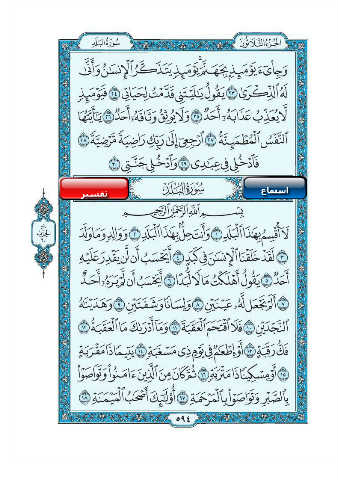 الجزء الثلاثون
سورة البلد
وَجِاْىٓءَ يَوْمَئِذٍۭ بِجَهَنَّمَ يَوْمَئِذٍ يَتَذَكَّرُ ٱلْإِنسَٰنُ وَأَنَّىٰ
لَهُ ٱلذِّكْرَىٰ ٢٣ يَقُولُ يَٰلَيْتَنِى قَدَّمْتُ لِحَيَاتِى ٢٤ فَيَوْمَئِذٍ
لَّا يُعَذِّبُ عَذَابَهُۥٓ أَحَدٌ ٢٥ وَلَا يُوثِقُ وَثَاقَهُۥٓ أَحَدٌ ٢٦ يَٰٓأَيَّتُهَا
ٱلنَّفْسُ ٱلْمُطْمَئِنَّةُ ٢٧ ٱرْجِعِىٓ إِلَىٰ رَبِّكِ رَاضِيَةً مَّرْضِيَّةً ٢٨
فَٱدْخُلِى فِى عِبَٰدِى ٢٩ وَٱدْخُلِى جَنَّتِى ٣٠
استماع
سورة البلد
تفسير
بِسْمِ ٱللَّهِ ٱلرَّحْمَٰنِ ٱلرَّحِيمِ
لَآ أُقْسِمُ بِهَٰذَا ٱلْبَلَدِ ١ وَأَنتَ حِلٌّۢ بِهَٰذَا ٱلْبَلَدِ ٢ وَوَالِدٍ وَمَا وَلَدَ
٣ لَقَدْ خَلَقْنَا ٱلْإِنسَٰنَ فِى كَبَدٍ ٤ أَيَحْسَبُ أَن لَّن يَقْدِرَ عَلَيْهِ
أَحَدٌ ٥ يَقُولُ أَهْلَكْتُ مَالًا لُّبَدًا ٦ أَيَحْسَبُ أَن لَّمْ يَرَهُۥٓ أَحَدٌ
٧ أَلَمْ نَجْعَل لَّهُۥ عَيْنَيْنِ ٨ وَلِسَانًا وَشَفَتَيْنِ ٩ وَهَدَيْنَٰهُ
ٱلنَّجْدَيْنِ ١٠ فَلَا ٱقْتَحَمَ ٱلْعَقَبَةَ ١١ وَمَآ أَدْرَىٰكَ مَا ٱلْعَقَبَةُ ١٢
فَكُّ رَقَبَةٍ ١٣ أَوْ إِطْعَٰمٌ فِى يَوْمٍ ذِى مَسْغَبَةٍ ١٤ يَتِيمًا ذَا مَقْرَبَةٍ
١٥ أَوْ مِسْكِينًا ذَا مَتْرَبَةٍ ١٦ ثُمَّ كَانَ مِنَ ٱلَّذِينَ ءَامَنُوا۟ وَتَوَاصَوْا۟
بِٱلصَّبْرِ وَتَوَاصَوْا۟ بِٱلْمَرْحَمَةِ ١٧ أُو۟لَٰٓئِكَ أَصْحَٰبُ ٱلْمَيْمَنَةِ ١٨
٥٩٤